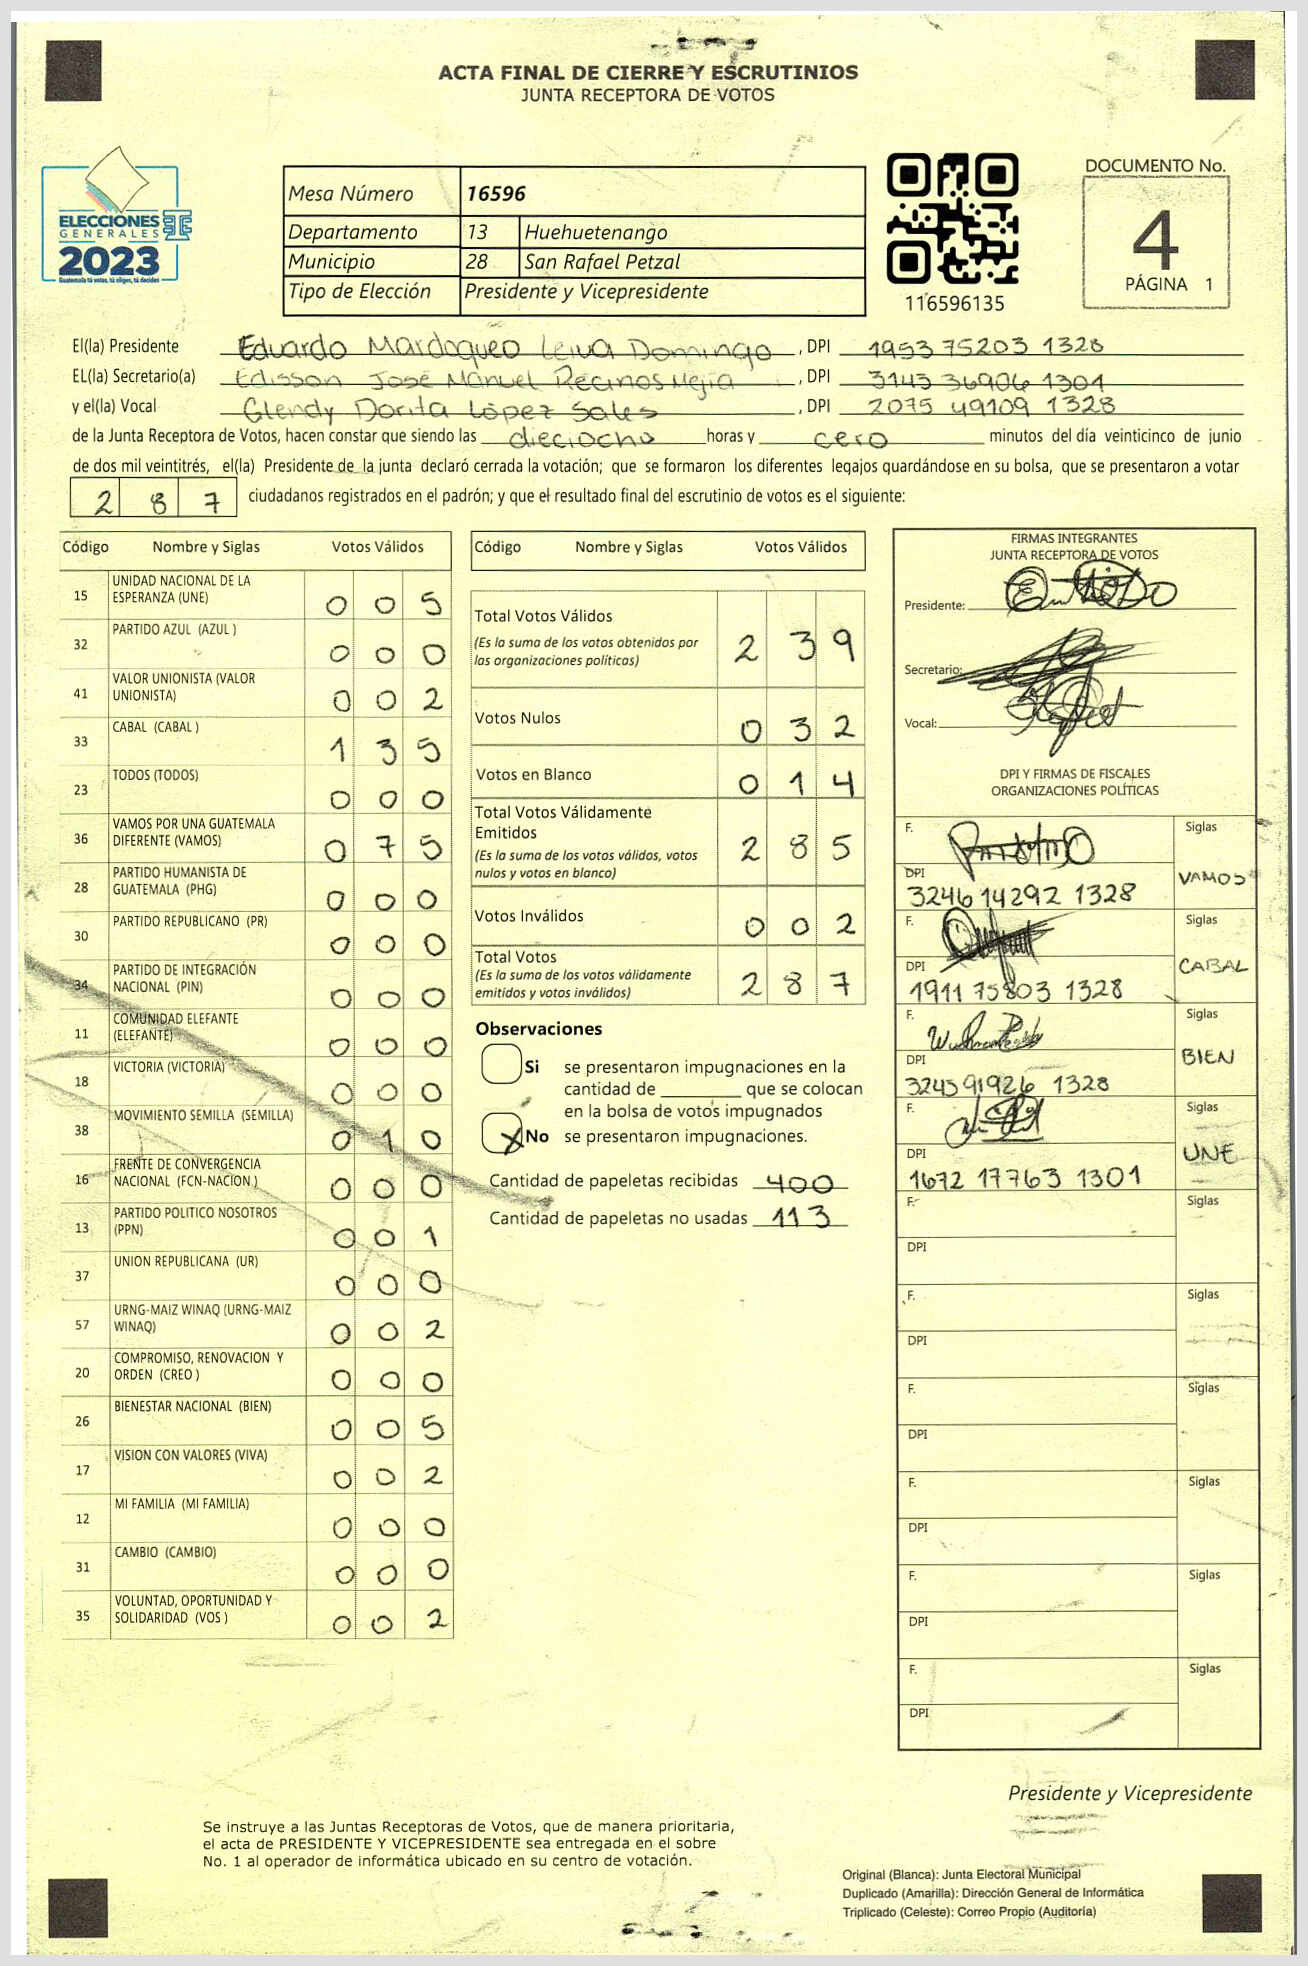 ACTA FINAL DE CIERRE Y ESCRUTINIOS
JUNTA RECEPTORA DE VOTOS
ELECCIONES
GENERALES
2023
Guatemala tú votas, tú eliges, tú decides
Mesa Número 16596
Departamento 13 Huehuetenango
Municipio 28 San Rafael Petzal
Tipo de Elección Presidente y Vicepresidente
116596135
DOCUMENTO No.
4
PÁGINA 1
El(la) Presidente Eduardo Mardoqueo Leiva Domingo, DPI 1953 75203 1328
EL(la) Secretario(a) Edisson José Manuel Recinos Mejia, DPI 3143 36906 1301
y el(la) Vocal Glendy Dorita López Sales, DPI 2075 49109 1328
de la Junta Receptora de Votos, hacen constar que siendo las dieciocho horas y cero minutos del día veinticinco de junio
de dos mil veintitrés, el(la) Presidente de la junta declaró cerrada la votación; que se formaron los diferentes legajos quardándose en su bolsa, que se presentaron a votar
2 8 7 ciudadanos registrados en el padrón; y que el resultado final del escrutinio de votos es el siguiente:
Código Nombre y Siglas Votos Válidos
15 UNIDAD NACIONAL DE LA ESPERANZA (UNE) 0 0 5
32 PARTIDO AZUL (AZUL ) 0 0 0
41 VALOR UNIONISTA (VALOR UNIONISTA) 0 0 2
33 CABAL (CABAL ) 1 3 5
23 TODOS (TODOS) 0 0 0
36 VAMOS POR UNA GUATEMALA DIFERENTE (VAMOS) 0 7 5
28 PARTIDO HUMANISTA DE GUATEMALA (PHG) 0 0 0
30 PARTIDO REPUBLICANO (PR) 0 0 0
34 PARTIDO DE INTEGRACIÓN NACIONAL (PIN) 0 0 0
11 COMUNIDAD ELEFANTE (ELEFANTE) 0 0 0
18 VICTORIA (VICTORIA) 0 0 0
38 MOVIMIENTO SEMILLA (SEMILLA) 0 1 0
16 FRENTE DE CONVERGENCIA NACIONAL (FCN-NACION ) 0 0 0
13 PARTIDO POLITICO NOSOTROS (PPN) 0 0 1
37 UNION REPUBLICANA (UR) 0 0 0
57 URNG-MAIZ WINAQ (URNG-MAIZ WINAQ) 0 0 2
20 COMPROMISO, RENOVACION Y ORDEN (CREO ) 0 0 0
26 BIENESTAR NACIONAL (BIEN) 0 0 5
17 VISION CON VALORES (VIVA) 0 0 2
12 MI FAMILIA (MI FAMILIA) 0 0 0
31 CAMBIO (CAMBIO) 0 0 0
35 VOLUNTAD, OPORTUNIDAD Y SOLIDARIDAD (VOS ) 0 0 2
Código Nombre y Siglas Votos Válidos
Total Votos Válidos 2 3 9
(Es la suma de los votos obtenidos por
las organizaciones políticas)
Votos Nulos 0 3 2
Votos en Blanco 0 1 4
Total Votos Válidamente
Emitidos 2 8 5
(Es la suma de los votos válidos, votos
nulos y votos en blanco)
Votos Inválidos 0 0 2
Total Votos 2 8 7
(Es la suma de los votos válidamente
emitidos y votos inválidos)
Observaciones
Si se presentaron impugnaciones en la
cantidad de ________ que se colocan
en la bolsa de votos impugnados
X No se presentaron impugnaciones.
Cantidad de papeletas recibidas 400
Cantidad de papeletas no usadas 113
FIRMAS INTEGRANTES
JUNTA RECEPTORA DE VOTOS
Presidente:
Secretario:
Vocal:
DPI Y FIRMAS DE FISCALES
ORGANIZACIONES POLÍTICAS
F. Siglas
DPI VAMOS
3246 14292 1328
F. Siglas
DPI CABAL
1911 75803 1328
F. Siglas
DPI BIEN
3245 91926 1328
F. Siglas
DPI UNE
1672 17763 1301
F. Siglas
DPI
F. Siglas
DPI
F. Siglas
DPI
F. Siglas
DPI
F. Siglas
DPI
F. Siglas
DPI
Presidente y Vicepresidente
Se instruye a las Juntas Receptoras de Votos, que de manera prioritaria,
el acta de PRESIDENTE Y VICEPRESIDENTE sea entregada en el sobre
No. 1 al operador de informática ubicado en su centro de votación.
Original (Blanca): Junta Electoral Municipal
Duplicado (Amarilla): Dirección General de Informática
Triplicado (Celeste): Correo Propio (Auditoría)